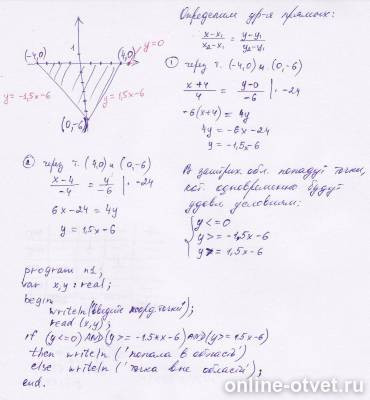 Определим ур-я прямых:
x-x₁ / x₂-x₁ = y-y₁ / y₂-y₁
1
(-4,0)
(4,0)
y=0
y=-1,5x-6
y=1,5x-6
(0,-6)
① через т. (-4,0) и (0,-6)
x+4 / 4 = y-0 / -6 | · -24
-6(x+4) = 4y
4y = -6x-24
y = -1,5x-6
② через т. (4,0) и (0,-6)
x-4 / -4 = y / -6 | · -24
6x-24 = 4y
y = 1,5x-6
В заштрих. обл. попадут точки,
кот. одновременно будут
удовл. условиям:
y<=0
y>=-1,5x-6
y>=1,5x-6
program n1;
var x,y: real;
begin
writeln('введите коорд. точки');
read (x,y);
if (y<=0) AND (y>=-1.5*x-6) AND (y>=1.5x-6)
then writeln ('попала в область')
else writeln ('точка вне области');
end.
online-otvet.ru